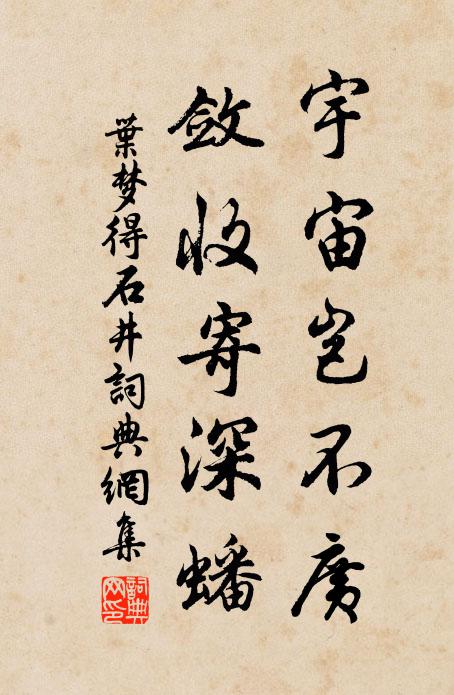 宇宙豈不廣
斂收寄深蟠
葉梦得石井詞典網集
詞典